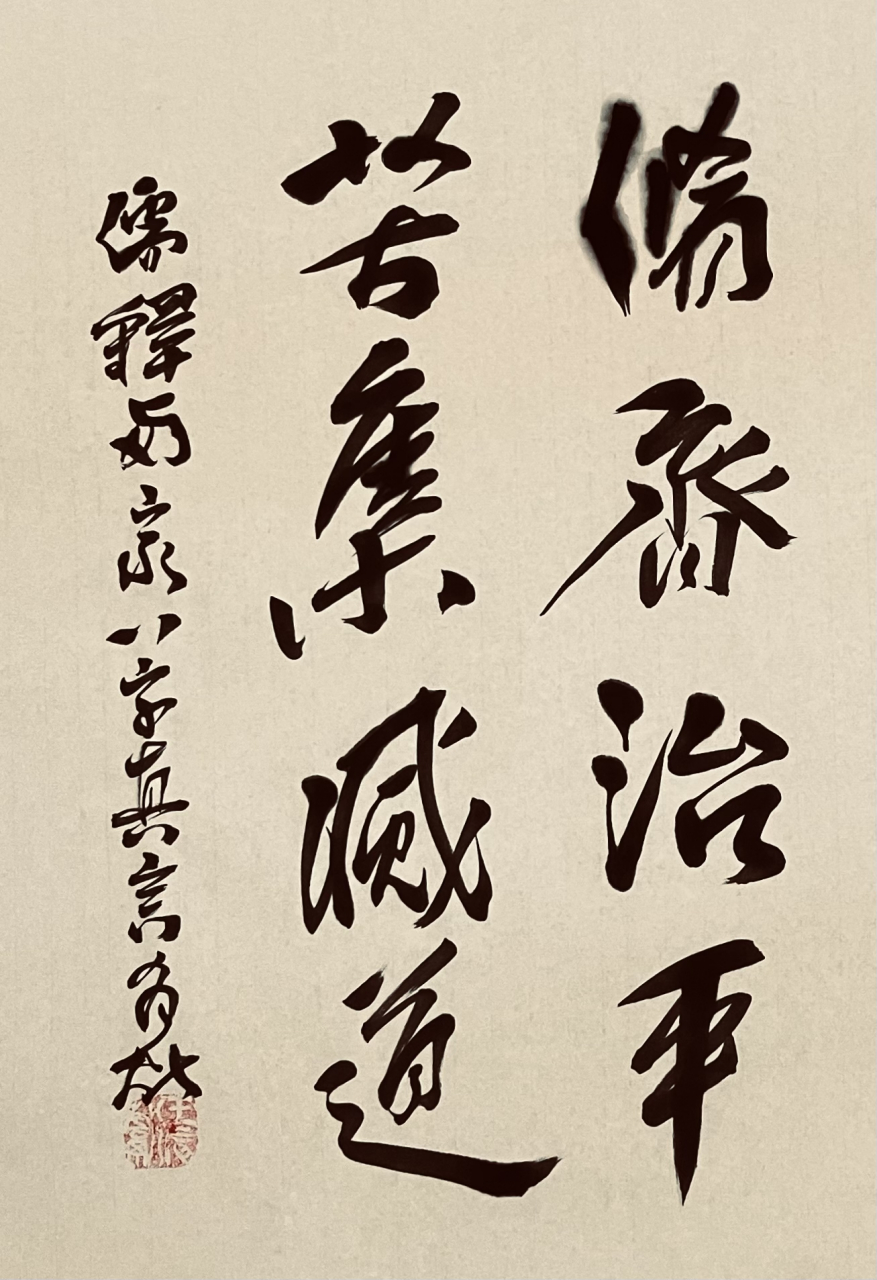 脩齊治平
苦集滅道
儒釋兩家八字真言